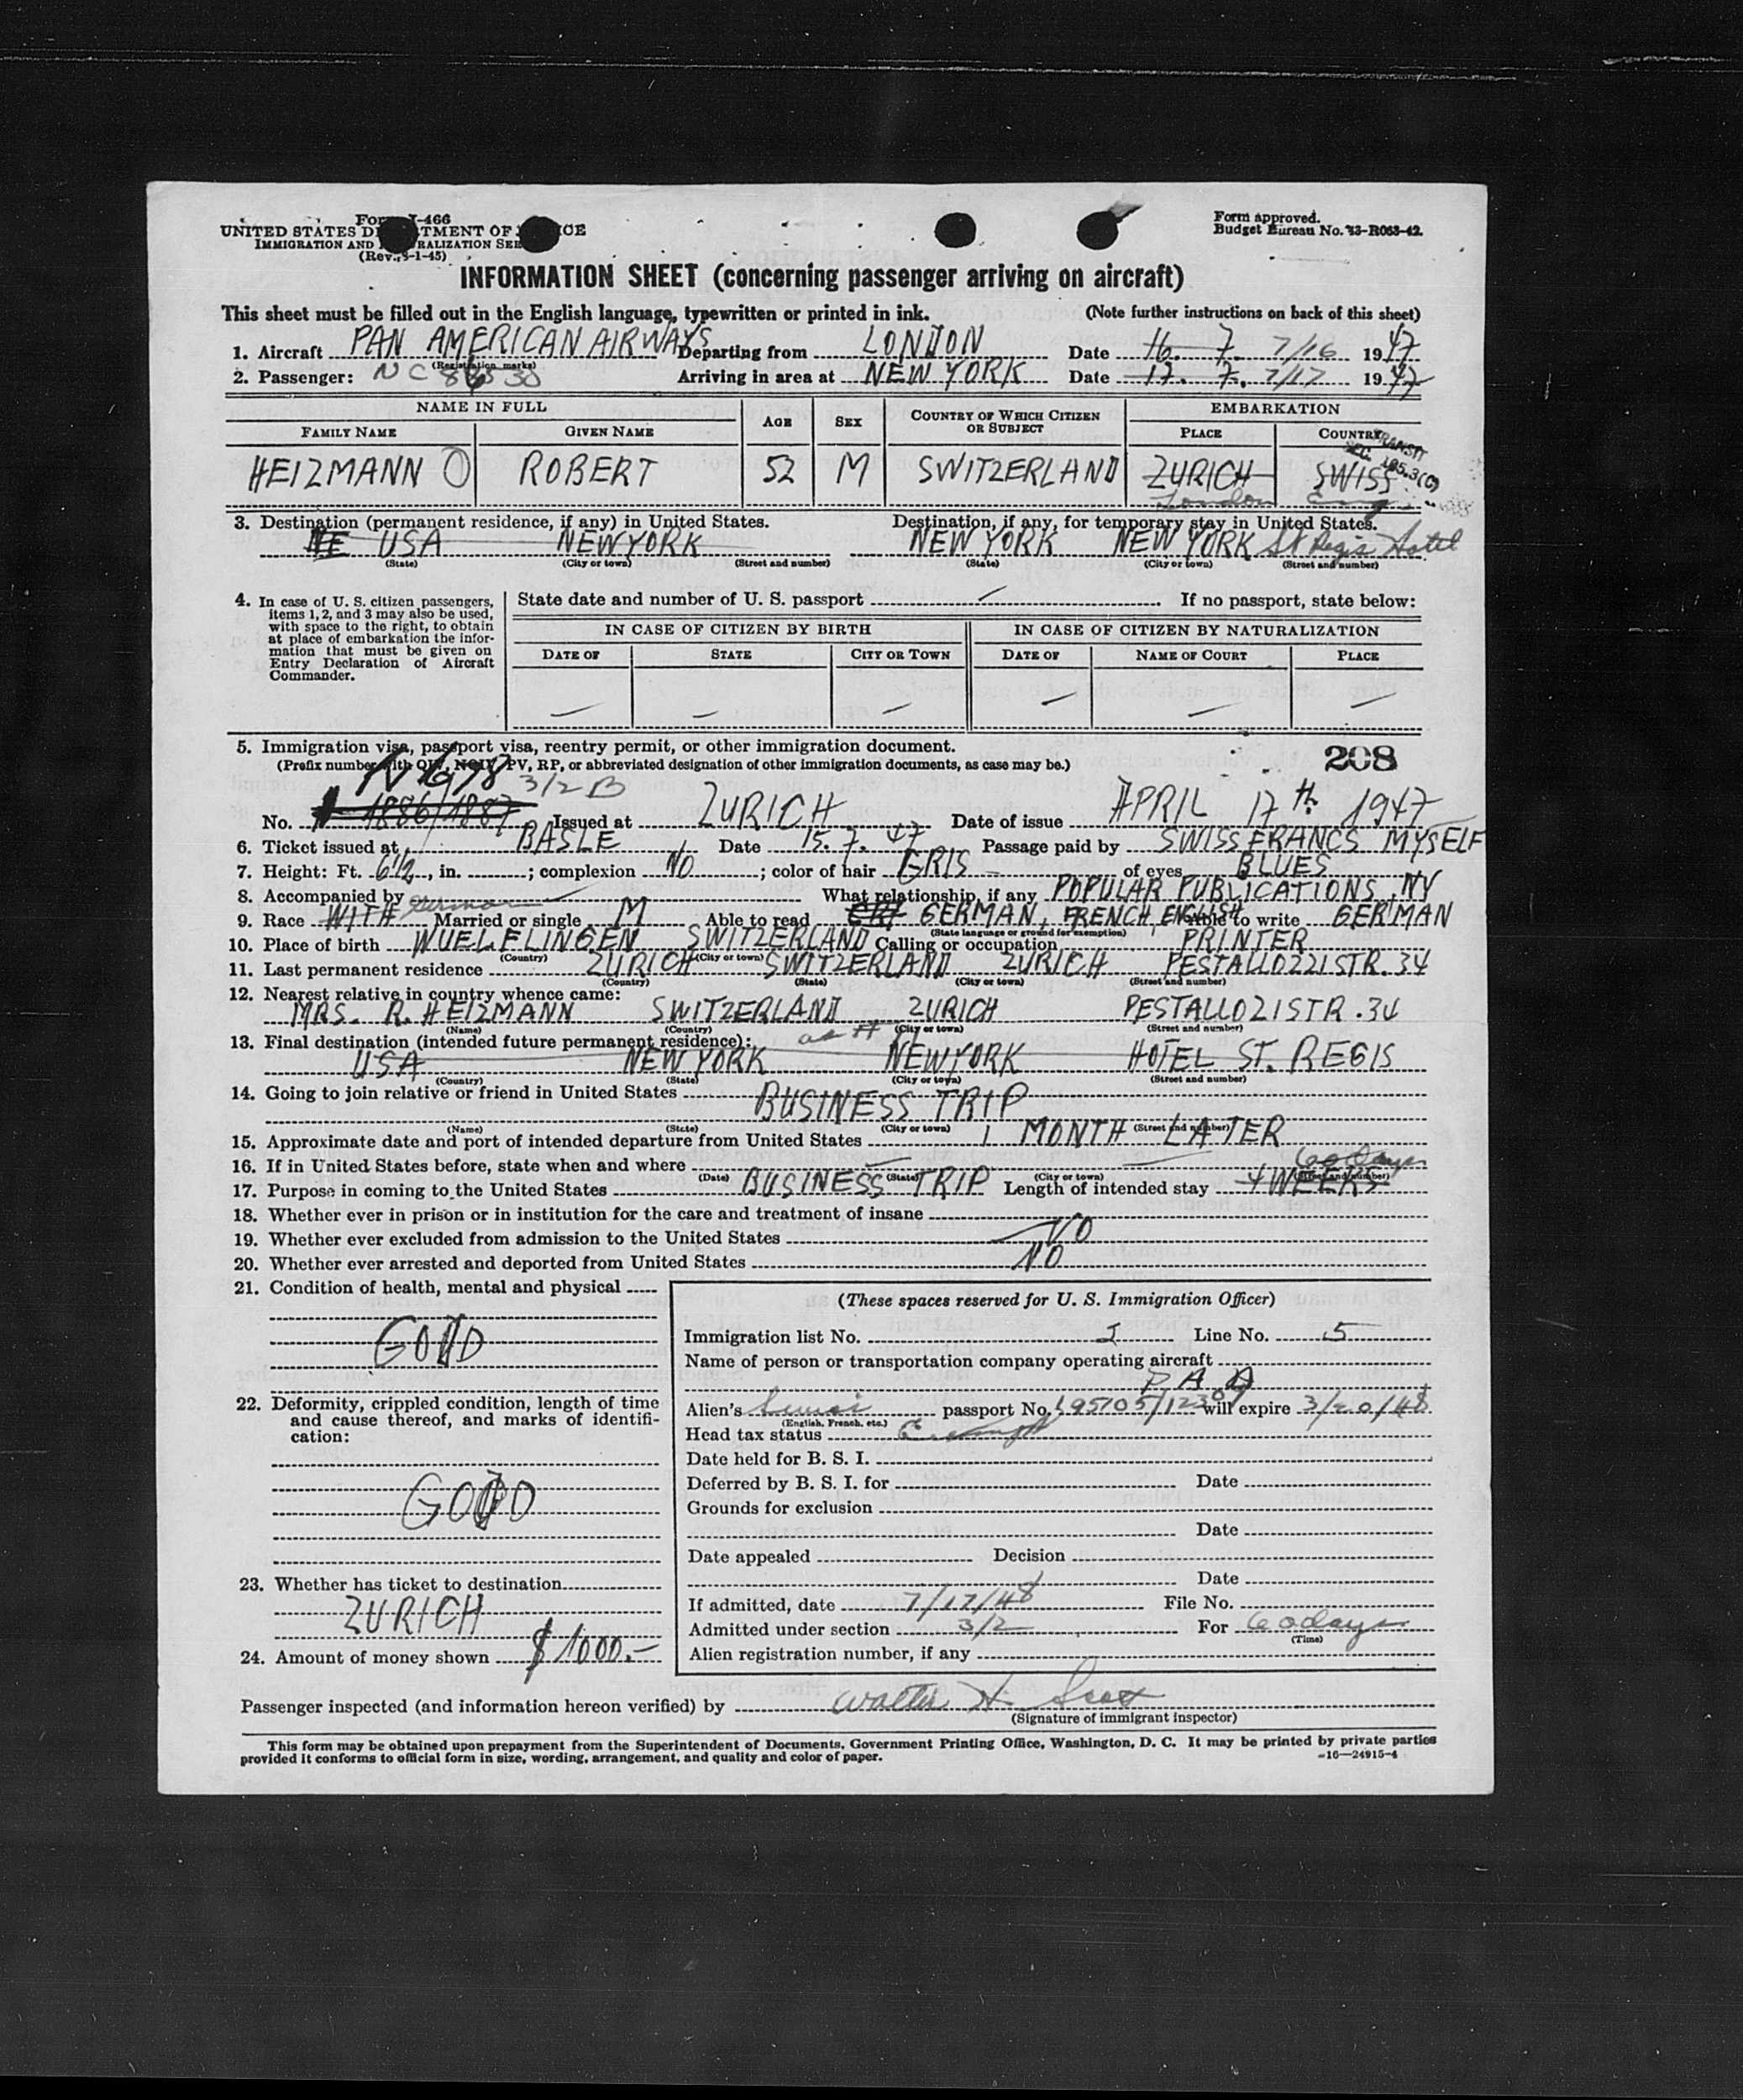 Form I-466
UNITED STATES DEPARTMENT OF JUSTICE
IMMIGRATION AND NATURALIZATION SERVICE
(Rev. 3-1-45)
Form approved.
Budget Bureau No. 43-R063-42.
INFORMATION SHEET (concerning passenger arriving on aircraft)
This sheet must be filled out in the English language, typewritten or printed in ink. (Note further instructions on back of this sheet)
1. Aircraft PAN AMERICAN AIRWAYS Departing from LONDON Date 16. 7. 7/16 1947
(Registration marks)
2. Passenger: NC Arriving in area at NEW YORK Date 17. 7. 7/17 1947
NAME IN FULL AGE SEX COUNTRY OF WHICH CITIZEN OR SUBJECT EMBARKATION
FAMILY NAME GIVEN NAME PLACE COUNTRY
TRANSIT
SEC. 105.3(C)
HEIZMANN ROBERT 52 M SWITZERLAND ZURICH SWISS
London
3. Destination (permanent residence, if any) in United States. Destination, if any, for temporary stay in United States.
USA NEW YORK NEW YORK NEW YORK St Regis Hotel
(State) (City or town) (Street and number) (State) (City or town) (Street and number)
4. In case of U. S. citizen passengers, items 1, 2, and 3 may also be used, with space to the right, to obtain at place of embarkation the information that must be given on Entry Declaration of Aircraft Commander.
State date and number of U. S. passport . If no passport, state below:
IN CASE OF CITIZEN BY BIRTH IN CASE OF CITIZEN BY NATURALIZATION
DATE OF STATE CITY OR TOWN DATE OF NAME OF COURT PLACE
5. Immigration visa, passport visa, reentry permit, or other immigration document.
(Prefix number with QIV, NQIV, PV, RP, or abbreviated designation of other immigration documents, as case may be.)
208
3/2 B
No. 1886/1887 Issued at ZURICH Date of issue APRIL 17th 1947
6. Ticket issued at BASLE Date 15. 7. 47 Passage paid by SWISS FRANCS MYSELF
7. Height: Ft. 6 1/2, in. ; complexion NO ; color of hair GRIS of eyes BLUES
8. Accompanied by What relationship, if any POPULAR PUBLICATIONS, NY
9. Race WITH German Married or single M Able to read GERMAN, FRENCH, ENGLISH Able to write GERMAN
(State language or ground for exemption)
10. Place of birth WUELFLINGEN SWITZERLAND Calling or occupation PRINTER
(Country) (City or town)
11. Last permanent residence ZURICH SWITZERLAND ZURICH PESTALLOZZISTR. 34
(Country) (State) (City or town) (Street and number)
12. Nearest relative in country whence came:
MRS. R. HEIZMANN SWITZERLAND ZURICH PESTALLOZISTR. 34
(Name) (Country) (City or town) (Street and number)
13. Final destination (intended future permanent residence):
USA NEW YORK NEW YORK HOTEL ST. REGIS
(Country) (State) (City or town) (Street and number)
14. Going to join relative or friend in United States
BUSINESS TRIP
(Name) (State) (City or town) (Street and number)
15. Approximate date and port of intended departure from United States 1 MONTH LATER
16. If in United States before, state when and where
(Date) (State) (City or town) (Street and number)
60 Days
17. Purpose in coming to the United States BUSINESS TRIP Length of intended stay 4 WEEKS
18. Whether ever in prison or in institution for the care and treatment of insane
19. Whether ever excluded from admission to the United States NO
20. Whether ever arrested and deported from United States NO
21. Condition of health, mental and physical
GOOD
22. Deformity, crippled condition, length of time and cause thereof, and marks of identification:
GOOD
23. Whether has ticket to destination
ZURICH
24. Amount of money shown $ 1000.-
(These spaces reserved for U. S. Immigration Officer)
Immigration list No. Line No. 5
Name of person or transportation company operating aircraft
P A A
Alien's passport No. will expire 3/20/48
(English, French, etc.)
Head tax status
Date held for B. S. I.
Deferred by B. S. I. for Date
Grounds for exclusion
Date
Date appealed Decision
Date
If admitted, date 7/17/48 File No.
Admitted under section 3/2 For 60 days
(Time)
Alien registration number, if any
Passenger inspected (and information hereon verified) by Walter H.
(Signature of immigrant inspector)
This form may be obtained upon prepayment from the Superintendent of Documents, Government Printing Office, Washington, D. C. It may be printed by private parties
provided it conforms to official form in size, wording, arrangement, and quality and color of paper.
16—24915-4